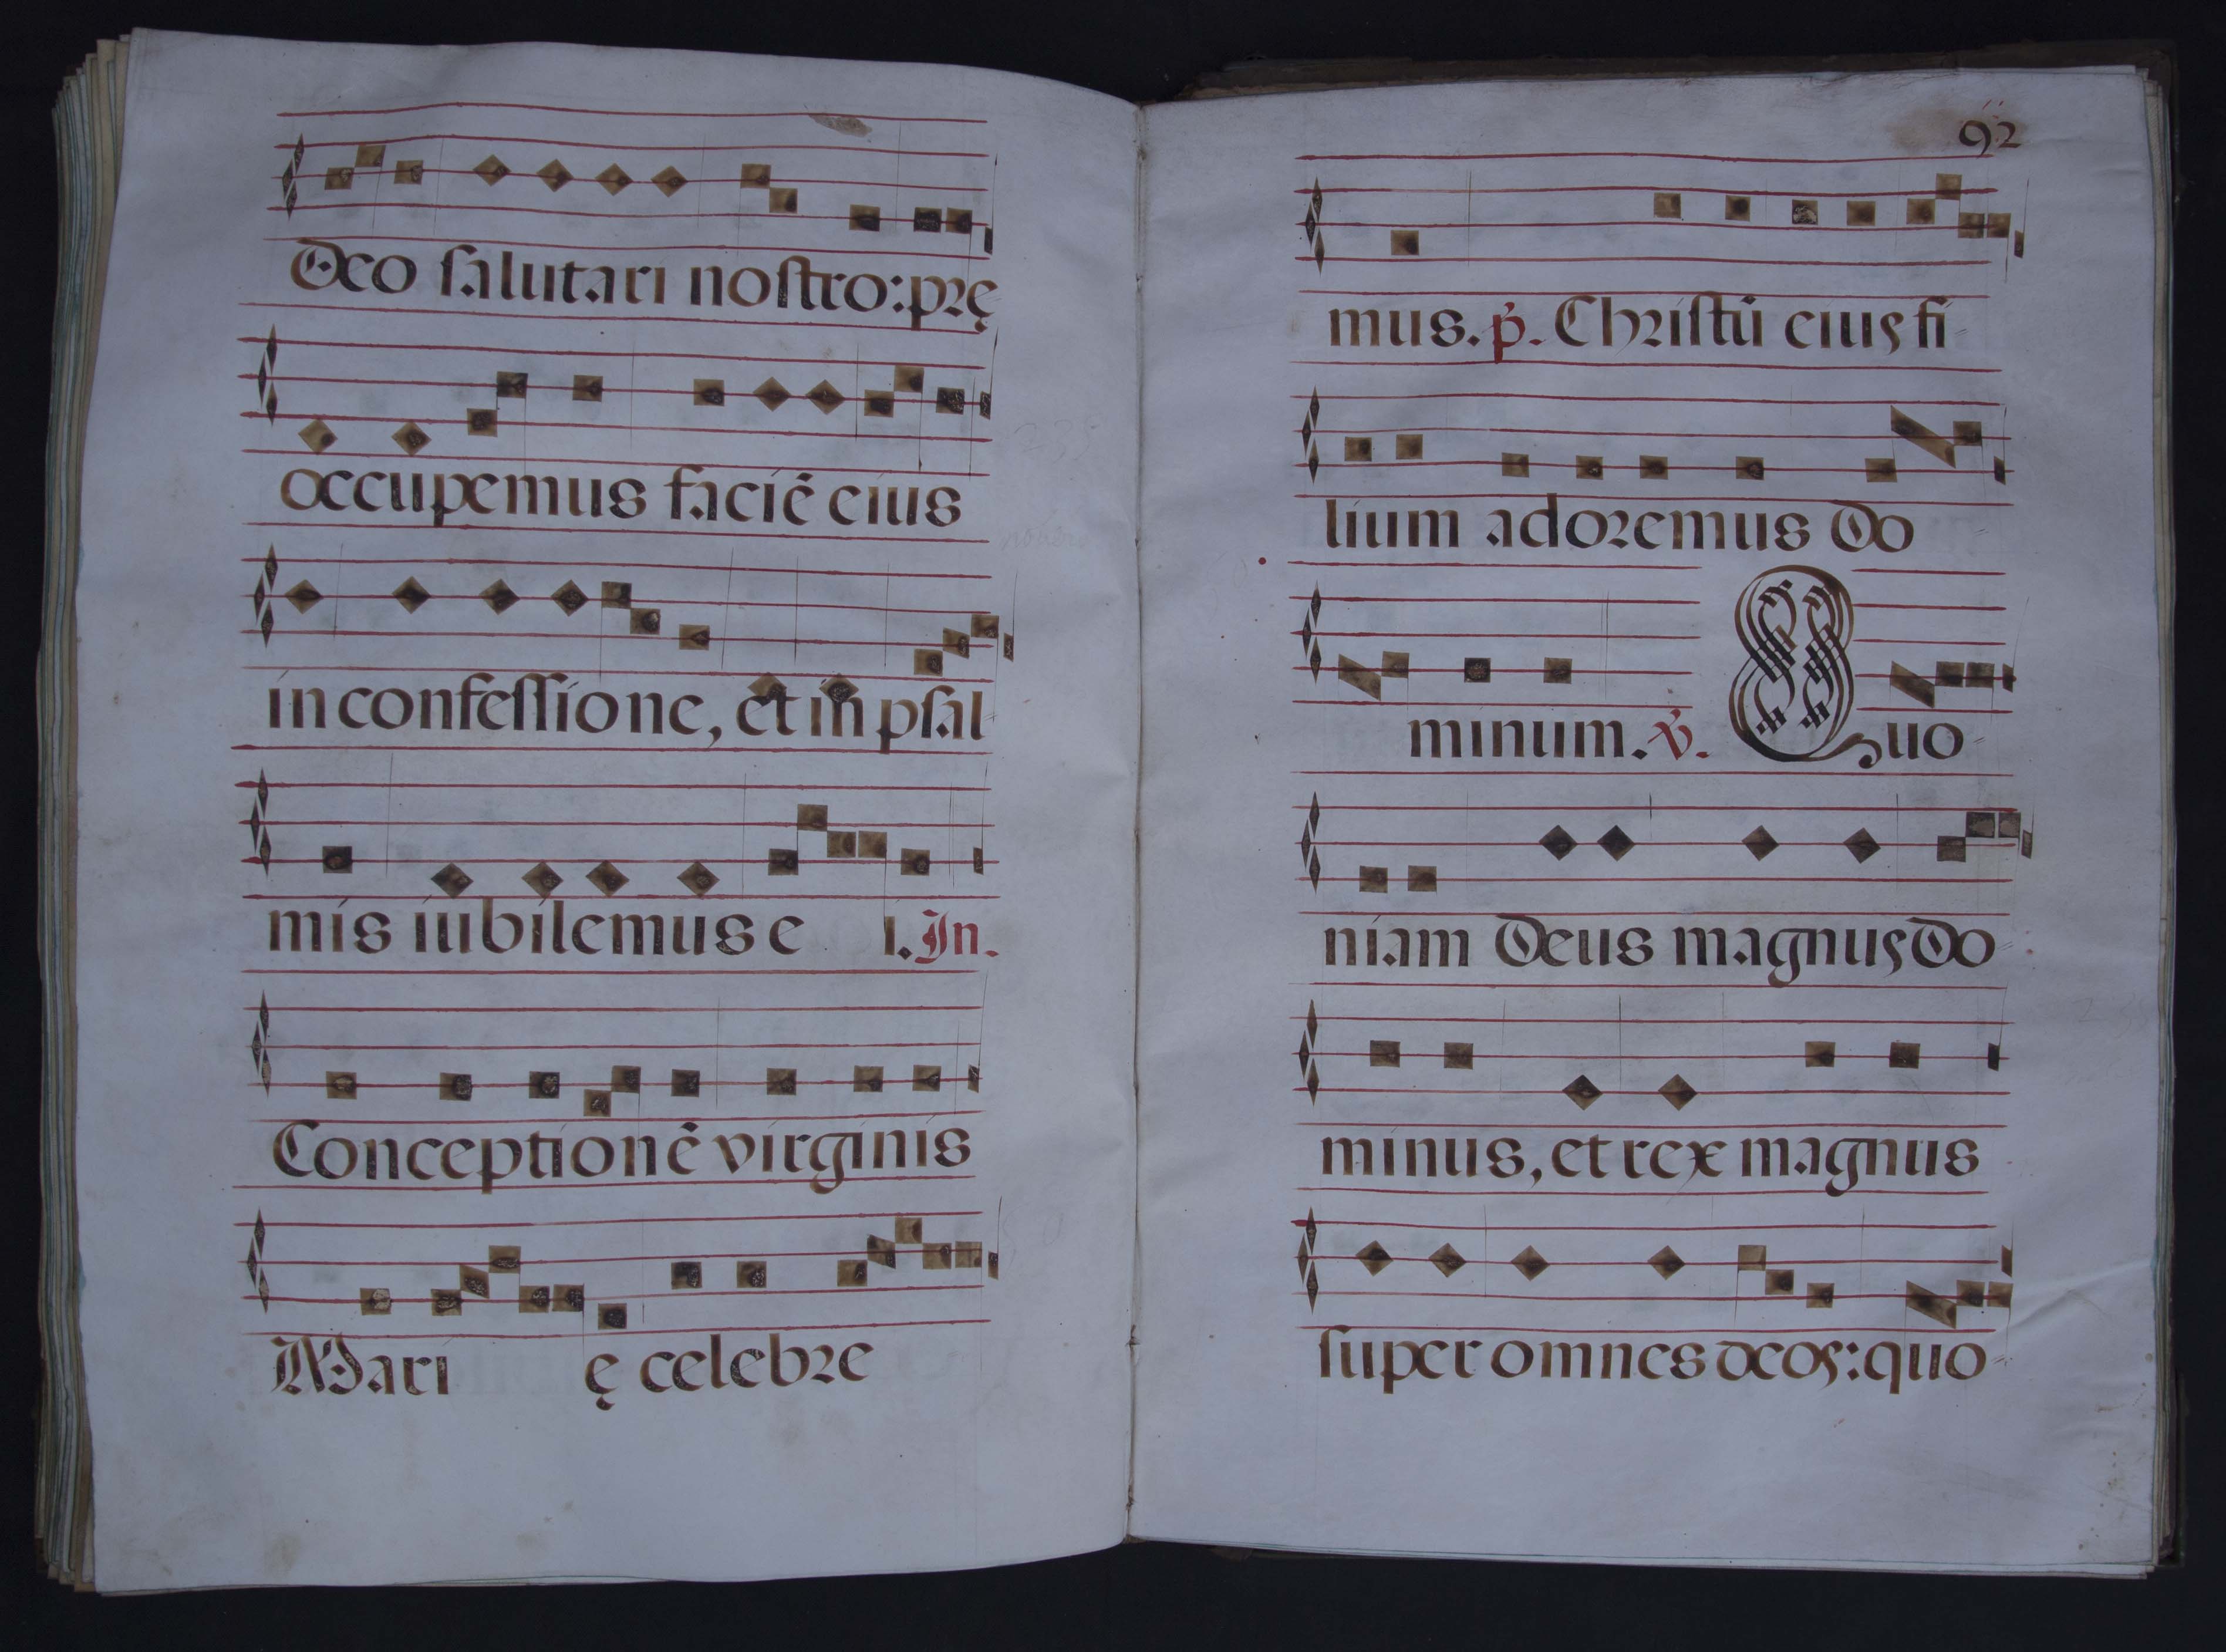 Deo salutari nostro: prę
occupemus faciē eius
in confessione, et in psal
mis iubilemus e i. In.
Conceptionē virginis
Mari ę celebre
92
mus. p̄. Christū eius fi
lium adoremus Do
minum. ℣. Quo
niam Deus magnus Do
minus, et rex magnus
super omnes deos: quo